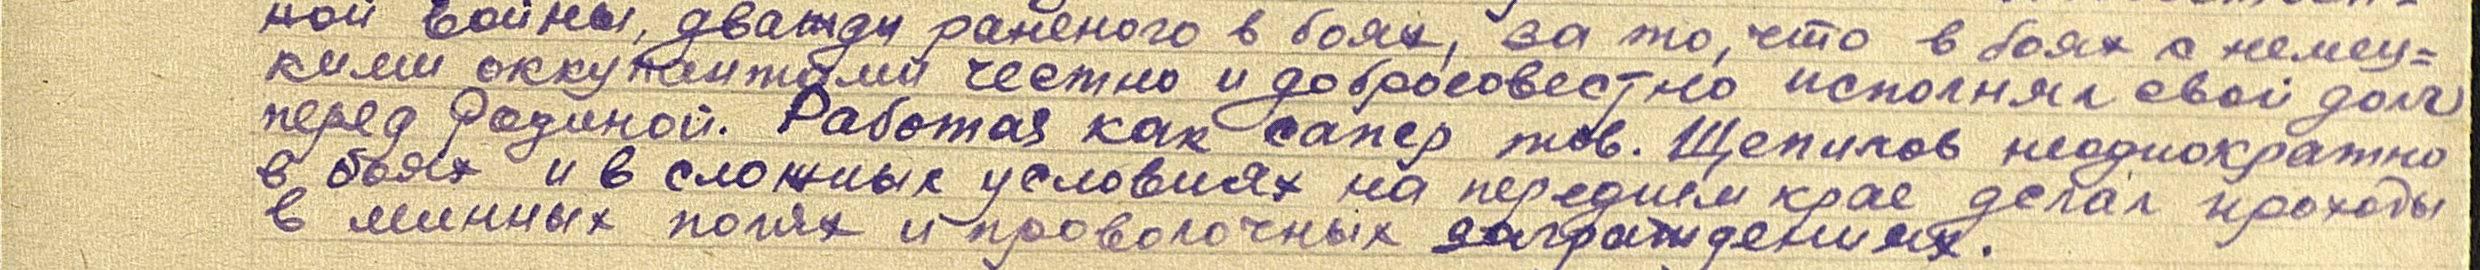 ной войны, дважды раненого в боях, за то, что в боях с немец=
кими оккупантами честно и добросовестно исполнял свой долг
перед Родиной. Работая как сапер тов. Щепилов неоднократно
в боях и в сложных условиях на переднем крае делал проходы
в минных полях и проволочных заграждениях.